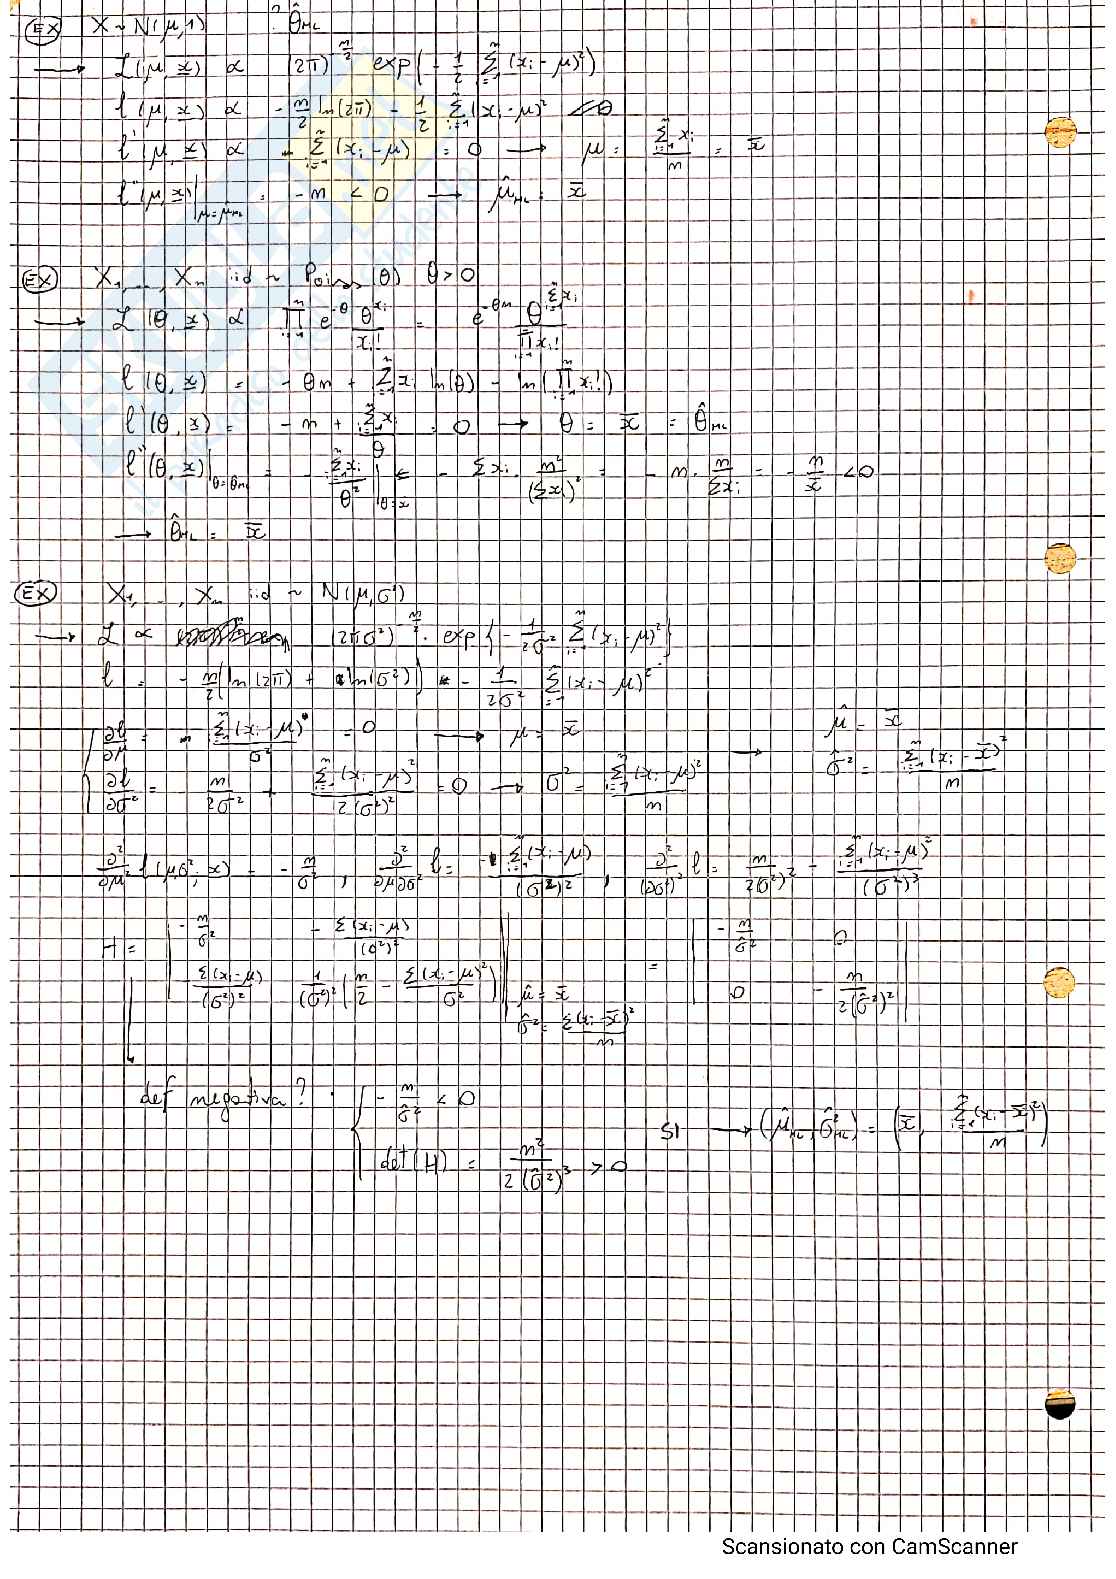 EX X ~ N(μ, 1) ? θ̂_ML
→ L(μ, x) ∝ (2π)^(-n/2) exp(-1/2 Σ_{i=1}^n (x_i - μ)²)
l(μ, x) ∝ -n/2 ln(2π) - 1/2 Σ_{i=1}^n (x_i - μ)²
l'(μ, x) ∝ - Σ_{i=1}^n (x_i - μ) = 0 → μ = Σ_{i=1}^n x_i / n = x̄
l''(μ, x)|_{μ=μ_ML} = -n < 0 → μ̂_ML = x̄
EX X_1, ..., X_n iid ~ Poisson(θ) θ > 0
→ L(θ, x) ∝ Π_{i=1}^n e^{-θ} θ^{x_i} / x_i! = e^{-θn} θ^{Σ_{i=1}^n x_i} / Π_{i=1}^n x_i!
l(θ, x) = -θn + Σ_{i=1}^n x_i ln(θ) - ln(Π_{i=1}^n x_i!)
l'(θ, x) = -n + Σ_{i=1}^n x_i / θ = 0 → θ = x̄ = θ̂_ML
l''(θ, x)|_{θ=θ_ML} = - Σ_{i=1}^n x_i / θ² |_{θ=x̄} = - Σx_i · n² / (Σx_i)² = - n · n / Σx_i = - n / x̄ < 0
→ θ̂_ML = x̄
EX X_1, ..., X_n iid ~ N(μ, σ²)
→ L ∝ (2πσ²)^(-n/2) · exp{-1/(2σ²) Σ_{i=1}^n (x_i - μ)²}
l = -n/2 (ln(2π) + ln(σ²)) - 1/(2σ²) Σ_{i=1}^n (x_i - μ)²
∂l/∂μ = - Σ_{i=1}^n (x_i - μ) / σ² = 0 → μ = x̄ → μ̂ = x̄
∂l/∂σ² = n/(2σ²) + Σ_{i=1}^n (x_i - μ)² / 2(σ²)² = 0 → σ² = Σ_{i=1}^n (x_i - μ)² / n σ̂² = Σ_{i=1}^n (x_i - x̄)² / n
∂²/∂μ² l(μ, σ²; x) = - n/σ² , ∂²/∂μ∂σ² l = - Σ_{i=1}^n (x_i - μ) / (σ²)² , ∂²/(∂σ²)² l = n/2(σ²)² - Σ_{i=1}^n (x_i - μ)² / (σ²)³
H = | -n/σ² - Σ(x_i - μ)/(σ²)² | = | -n/σ̂² 0 |
| - Σ(x_i - μ)/(σ²)² 1/(σ²)² (n/2 - Σ(x_i - μ)²/σ²) | μ̂ = x̄ σ̂² = Σ(x_i - x̄)²/n | 0 - n/2(σ̂²)² |
def negativa? { - n/σ̂² < 0
det(H) = n² / 2(σ̂²)³ > 0 SI → (μ̂_ML, σ̂²_ML) = (x̄, Σ_{i=1}^n (x_i - x̄)² / n)
Scansionato con CamScanner